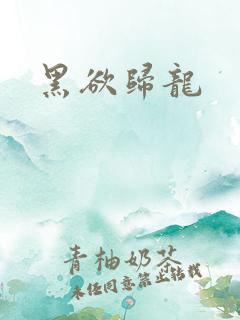 黑欲歸龍
青柚奶茶
未经同意禁止转载